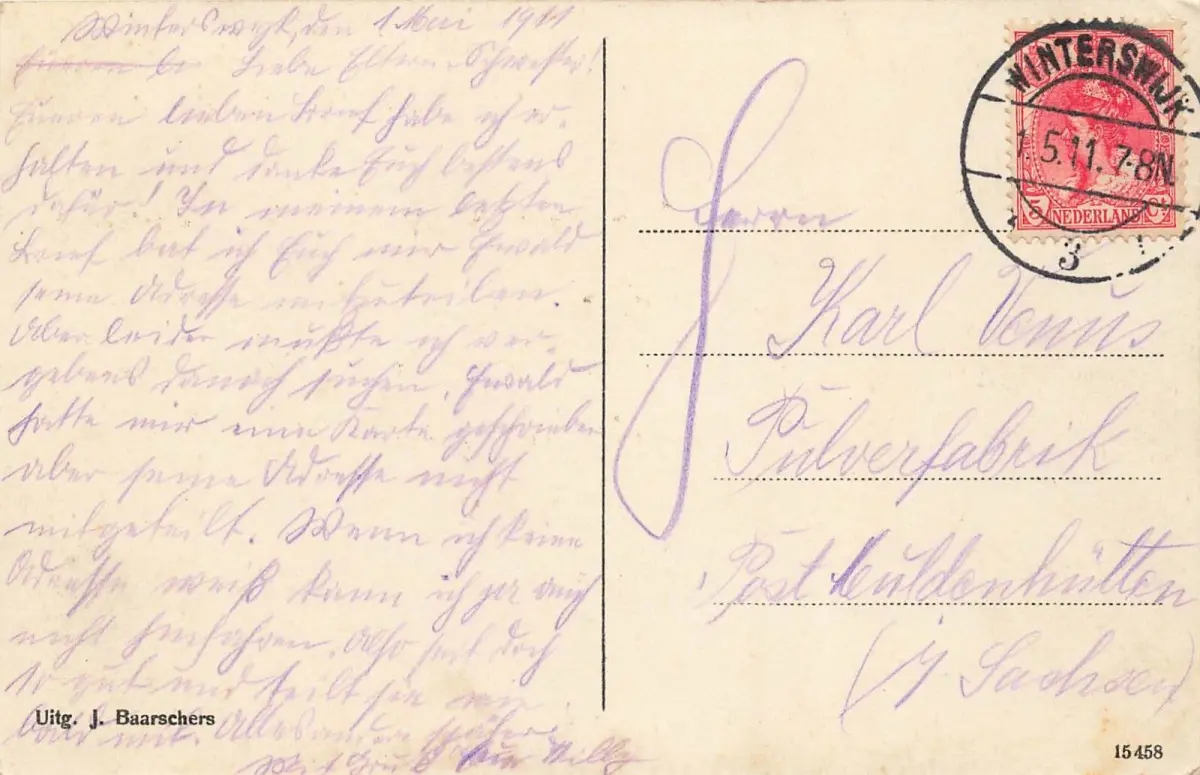 Winterswyk, den 1. Mai 1911
Liebe Eltern u. Schwester!
Eueren lieben Brief habe ich er-
halten und danke Euch bestens
dafür! In meinem letzten
Brief bat ich Euch mir Ewald
seine Adresse mitzuteilen.
Aber leider mußte ich ver-
gebens danach suchen. Ewald
hatte mir eine Karte geschrieben
aber seine Adresse nicht
mitgeteilt. Wenn ich keine
Adresse weiß kann ich ja auch
nicht hinfahren. Also seit doch
so gut und teilt sie mir
bald mit. Alles andere später.
Mit Gruß Euer Willy
Uitg. J. Baarschers
WINTERSWIJK
1. 5.11. 7-8N.
3
5 NEDERLAND Ct
Herrn
Karl Venus
Pulverfabrik
Post Muldenhütten
(i. Sachsen)
15458